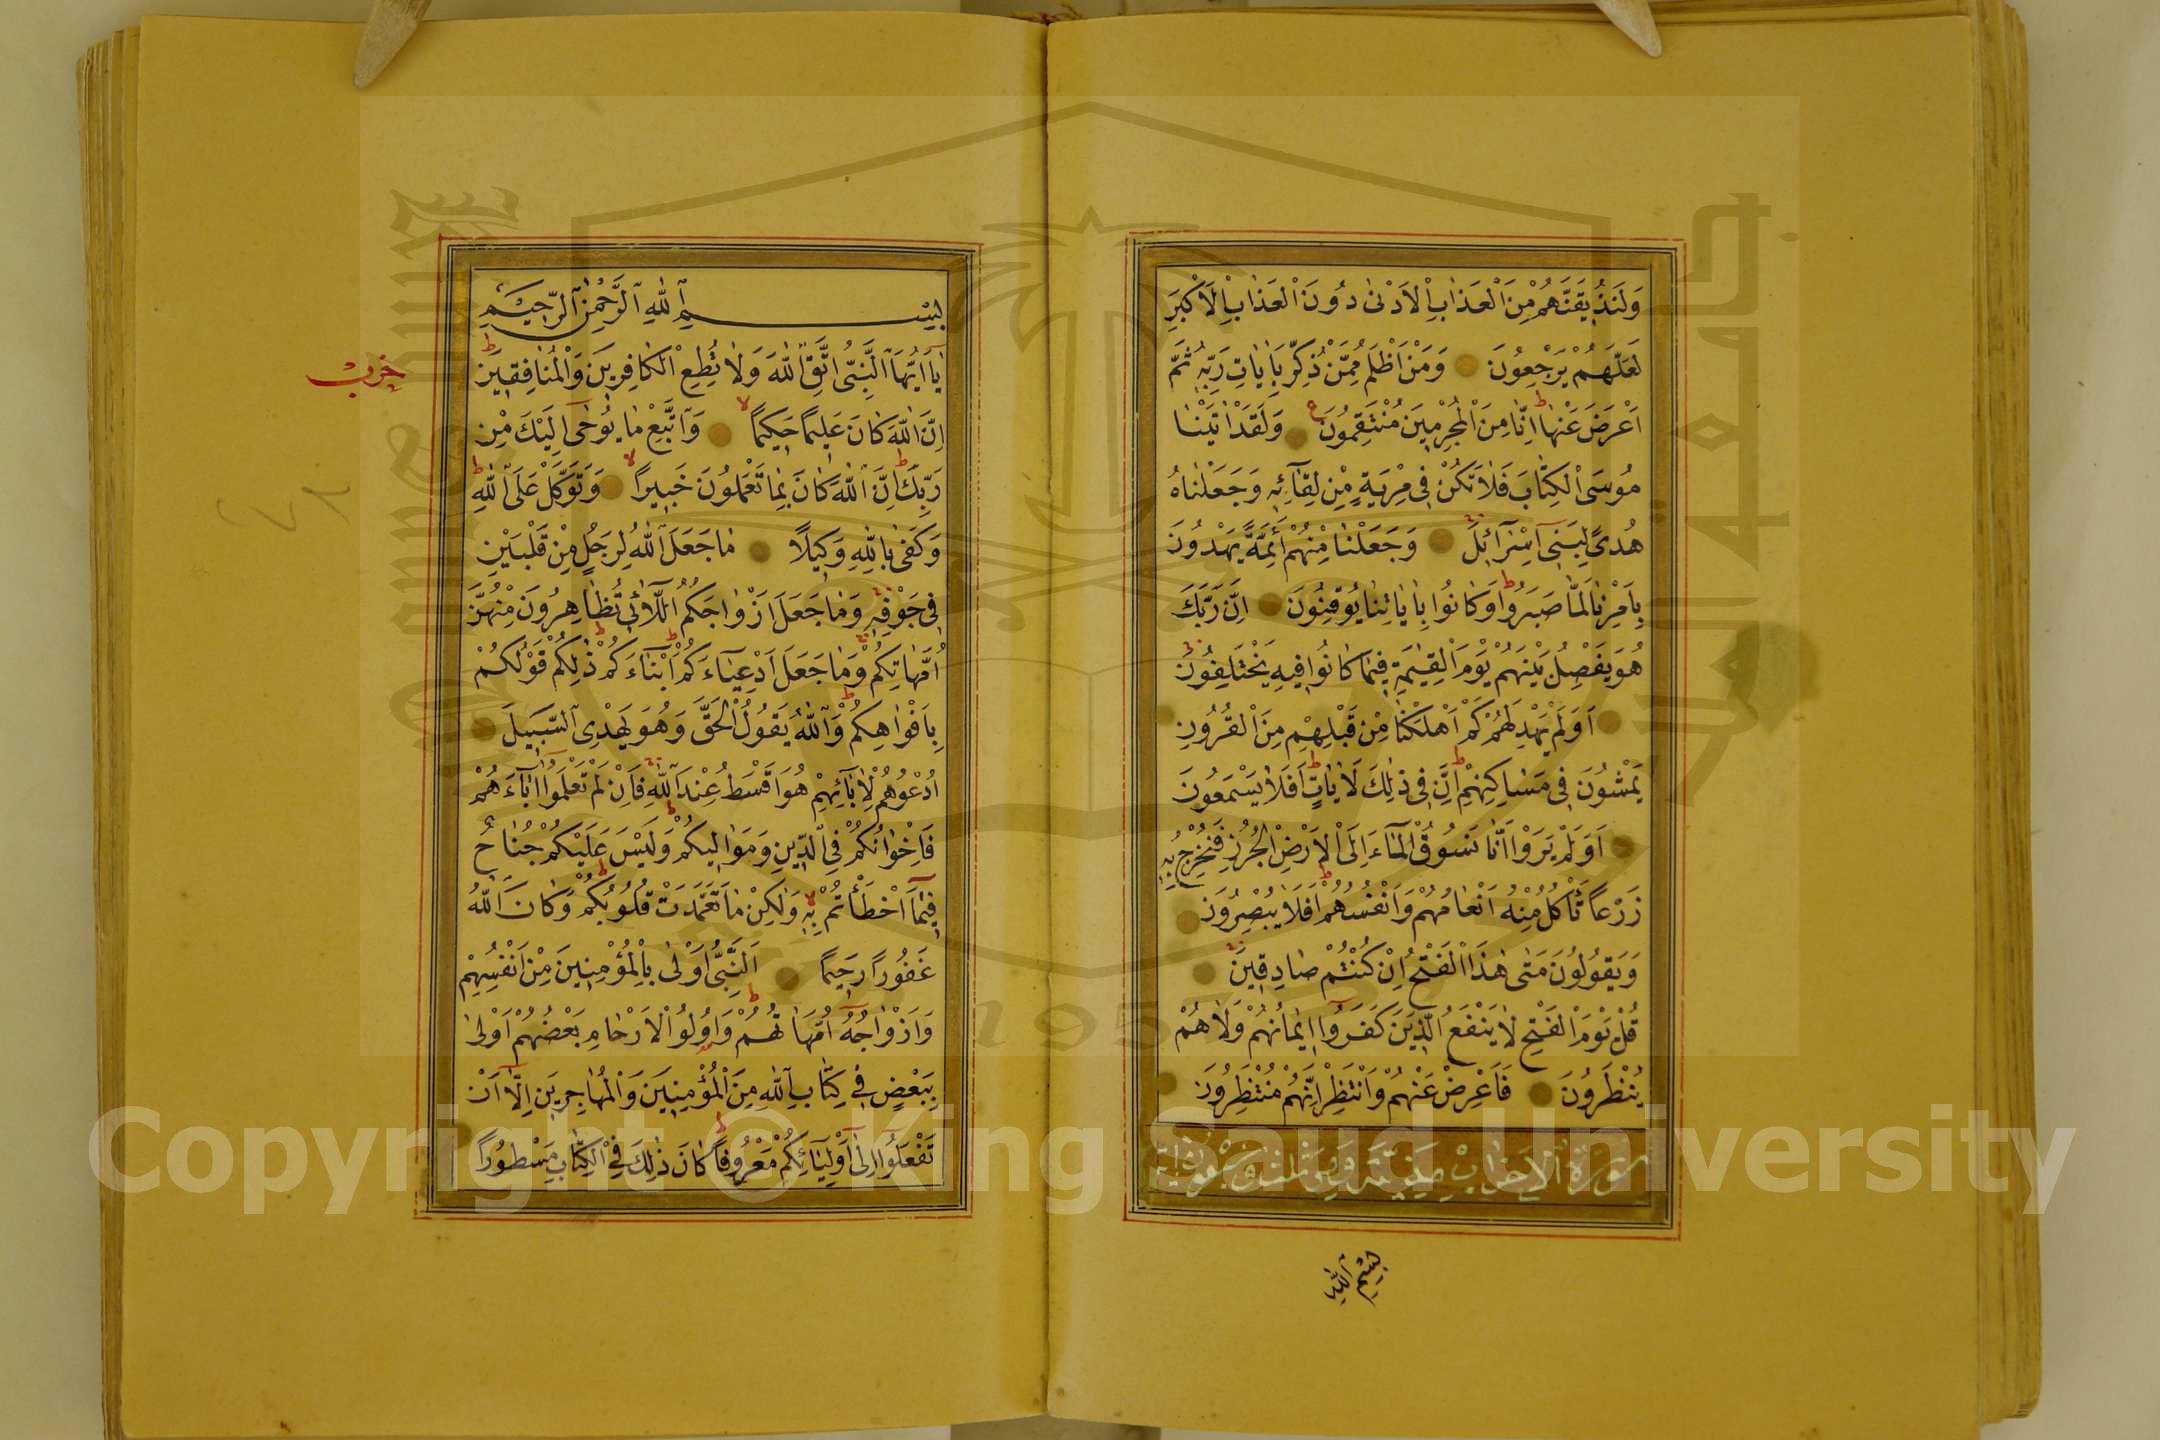 وَلَنُذِيقَنَّهُمْ مِنَ الْعَذَابِ الْاَدْنٰى دُونَ الْعَذَابِ الْاَكْبَرِ
لَعَلَّهُمْ يَرْجِعُونَ وَمَنْ اَظْلَمُ مِمَّنْ ذُكِّرَ بِاٰيَاتِ رَبِّهِ ثُمَّ
اَعْرَضَ عَنْهَا اِنَّا مِنَ الْمُجْرِمِينَ مُنْتَقِمُونَ وَلَقَدْ اٰتَيْنَا
مُوسَى الْكِتَابَ فَلَا تَكُنْ فِى مِرْيَةٍ مِنْ لِقَآئِهِ وَجَعَلْنَاهُ
هُدًى لِبَنِى اِسْرَآئِلَ وَجَعَلْنَا مِنْهُمْ اَئِمَّةً يَهْدُونَ
بِاَمْرِنَا لَمَّا صَبَرُوا وَكَانُوا بِاٰيَاتِنَا يُوقِنُونَ اِنَّ رَبَّكَ
هُوَ يَفْصِلُ بَيْنَهُمْ يَوْمَ الْقِيٰمَةِ فِيمَا كَانُوا فِيهِ يَخْتَلِفُونَ
اَوَلَمْ يَهْدِ لَهُمْ كَمْ اَهْلَكْنَا مِنْ قَبْلِهِمْ مِنَ الْقُرُونِ
يَمْشُونَ فِى مَسَاكِنِهِمْ اِنَّ فِى ذٰلِكَ لَاٰيَاتٍ اَفَلَا يَسْمَعُونَ
اَوَلَمْ يَرَوْا اَنَّا نَسُوقُ الْمَآءَ اِلَى الْاَرْضِ الْجُرُزِ فَنُخْرِجُ بِهِ
زَرْعًا تَأْكُلُ مِنْهُ اَنْعَامُهُمْ وَاَنْفُسُهُمْ اَفَلَا يُبْصِرُونَ
وَيَقُولُونَ مَتٰى هٰذَا الْفَتْحُ اِنْ كُنْتُمْ صَادِقِينَ
قُلْ يَوْمَ الْفَتْحِ لَا يَنْفَعُ الَّذِينَ كَفَرُوا اِيمَانُهُمْ وَلَا هُمْ
يُنْظَرُونَ فَاَعْرِضْ عَنْهُمْ وَانْتَظِرْ اِنَّهُمْ مُنْتَظِرُونَ
سُورَةُ الْاَحْزَابِ
بِسْمِ اللّٰهِ
بِسْمِ اللّٰهِ الرَّحْمٰنِ الرَّحِيمِ
يَا اَيُّهَا النَّبِىُّ اتَّقِ اللّٰهَ وَلَا تُطِعِ الْكَافِرِينَ وَالْمُنَافِقِينَ
حزب
اِنَّ اللّٰهَ كَانَ عَلِيمًا حَكِيمًا وَاتَّبِعْ مَا يُوحٰى اِلَيْكَ مِنْ
رَبِّكَ اِنَّ اللّٰهَ كَانَ بِمَا تَعْمَلُونَ خَبِيرًا وَتَوَكَّلْ عَلَى اللّٰهِ
وَكَفٰى بِاللّٰهِ وَكِيلًا مَا جَعَلَ اللّٰهُ لِرَجُلٍ مِنْ قَلْبَيْنِ
فِى جَوْفِهِ وَمَا جَعَلَ اَزْوَاجَكُمُ اللَّآئِى تُظَاهِرُونَ مِنْهُنَّ
اُمَّهَاتِكُمْ وَمَا جَعَلَ اَدْعِيَآءَكُمْ اَبْنَآءَكُمْ ذٰلِكُمْ قَوْلُكُمْ
بِاَفْوَاهِكُمْ وَاللّٰهُ يَقُولُ الْحَقَّ وَهُوَ يَهْدِى السَّبِيلَ
اُدْعُوهُمْ لِاٰبَآئِهِمْ هُوَ اَقْسَطُ عِنْدَ اللّٰهِ فَاِنْ لَمْ تَعْلَمُوا اٰبَآءَهُمْ
فَاِخْوَانُكُمْ فِى الدِّينِ وَمَوَالِيكُمْ وَلَيْسَ عَلَيْكُمْ جُنَاحٌ
فِيمَا اَخْطَأْتُمْ بِهِ وَلٰكِنْ مَا تَعَمَّدَتْ قُلُوبُكُمْ وَكَانَ اللّٰهُ
غَفُورًا رَحِيمًا اَلنَّبِىُّ اَوْلٰى بِالْمُؤْمِنِينَ مِنْ اَنْفُسِهِمْ
وَاَزْوَاجُهُ اُمَّهَاتُهُمْ وَاُولُوا الْاَرْحَامِ بَعْضُهُمْ اَوْلٰى
بِبَعْضٍ فِى كِتَابِ اللّٰهِ مِنَ الْمُؤْمِنِينَ وَالْمُهَاجِرِينَ اِلَّا اَنْ
تَفْعَلُوا اِلٰى اَوْلِيَآئِكُمْ مَعْرُوفًا كَانَ ذٰلِكَ فِى الْكِتَابِ مَسْطُورًا
Copyright © King Saud University